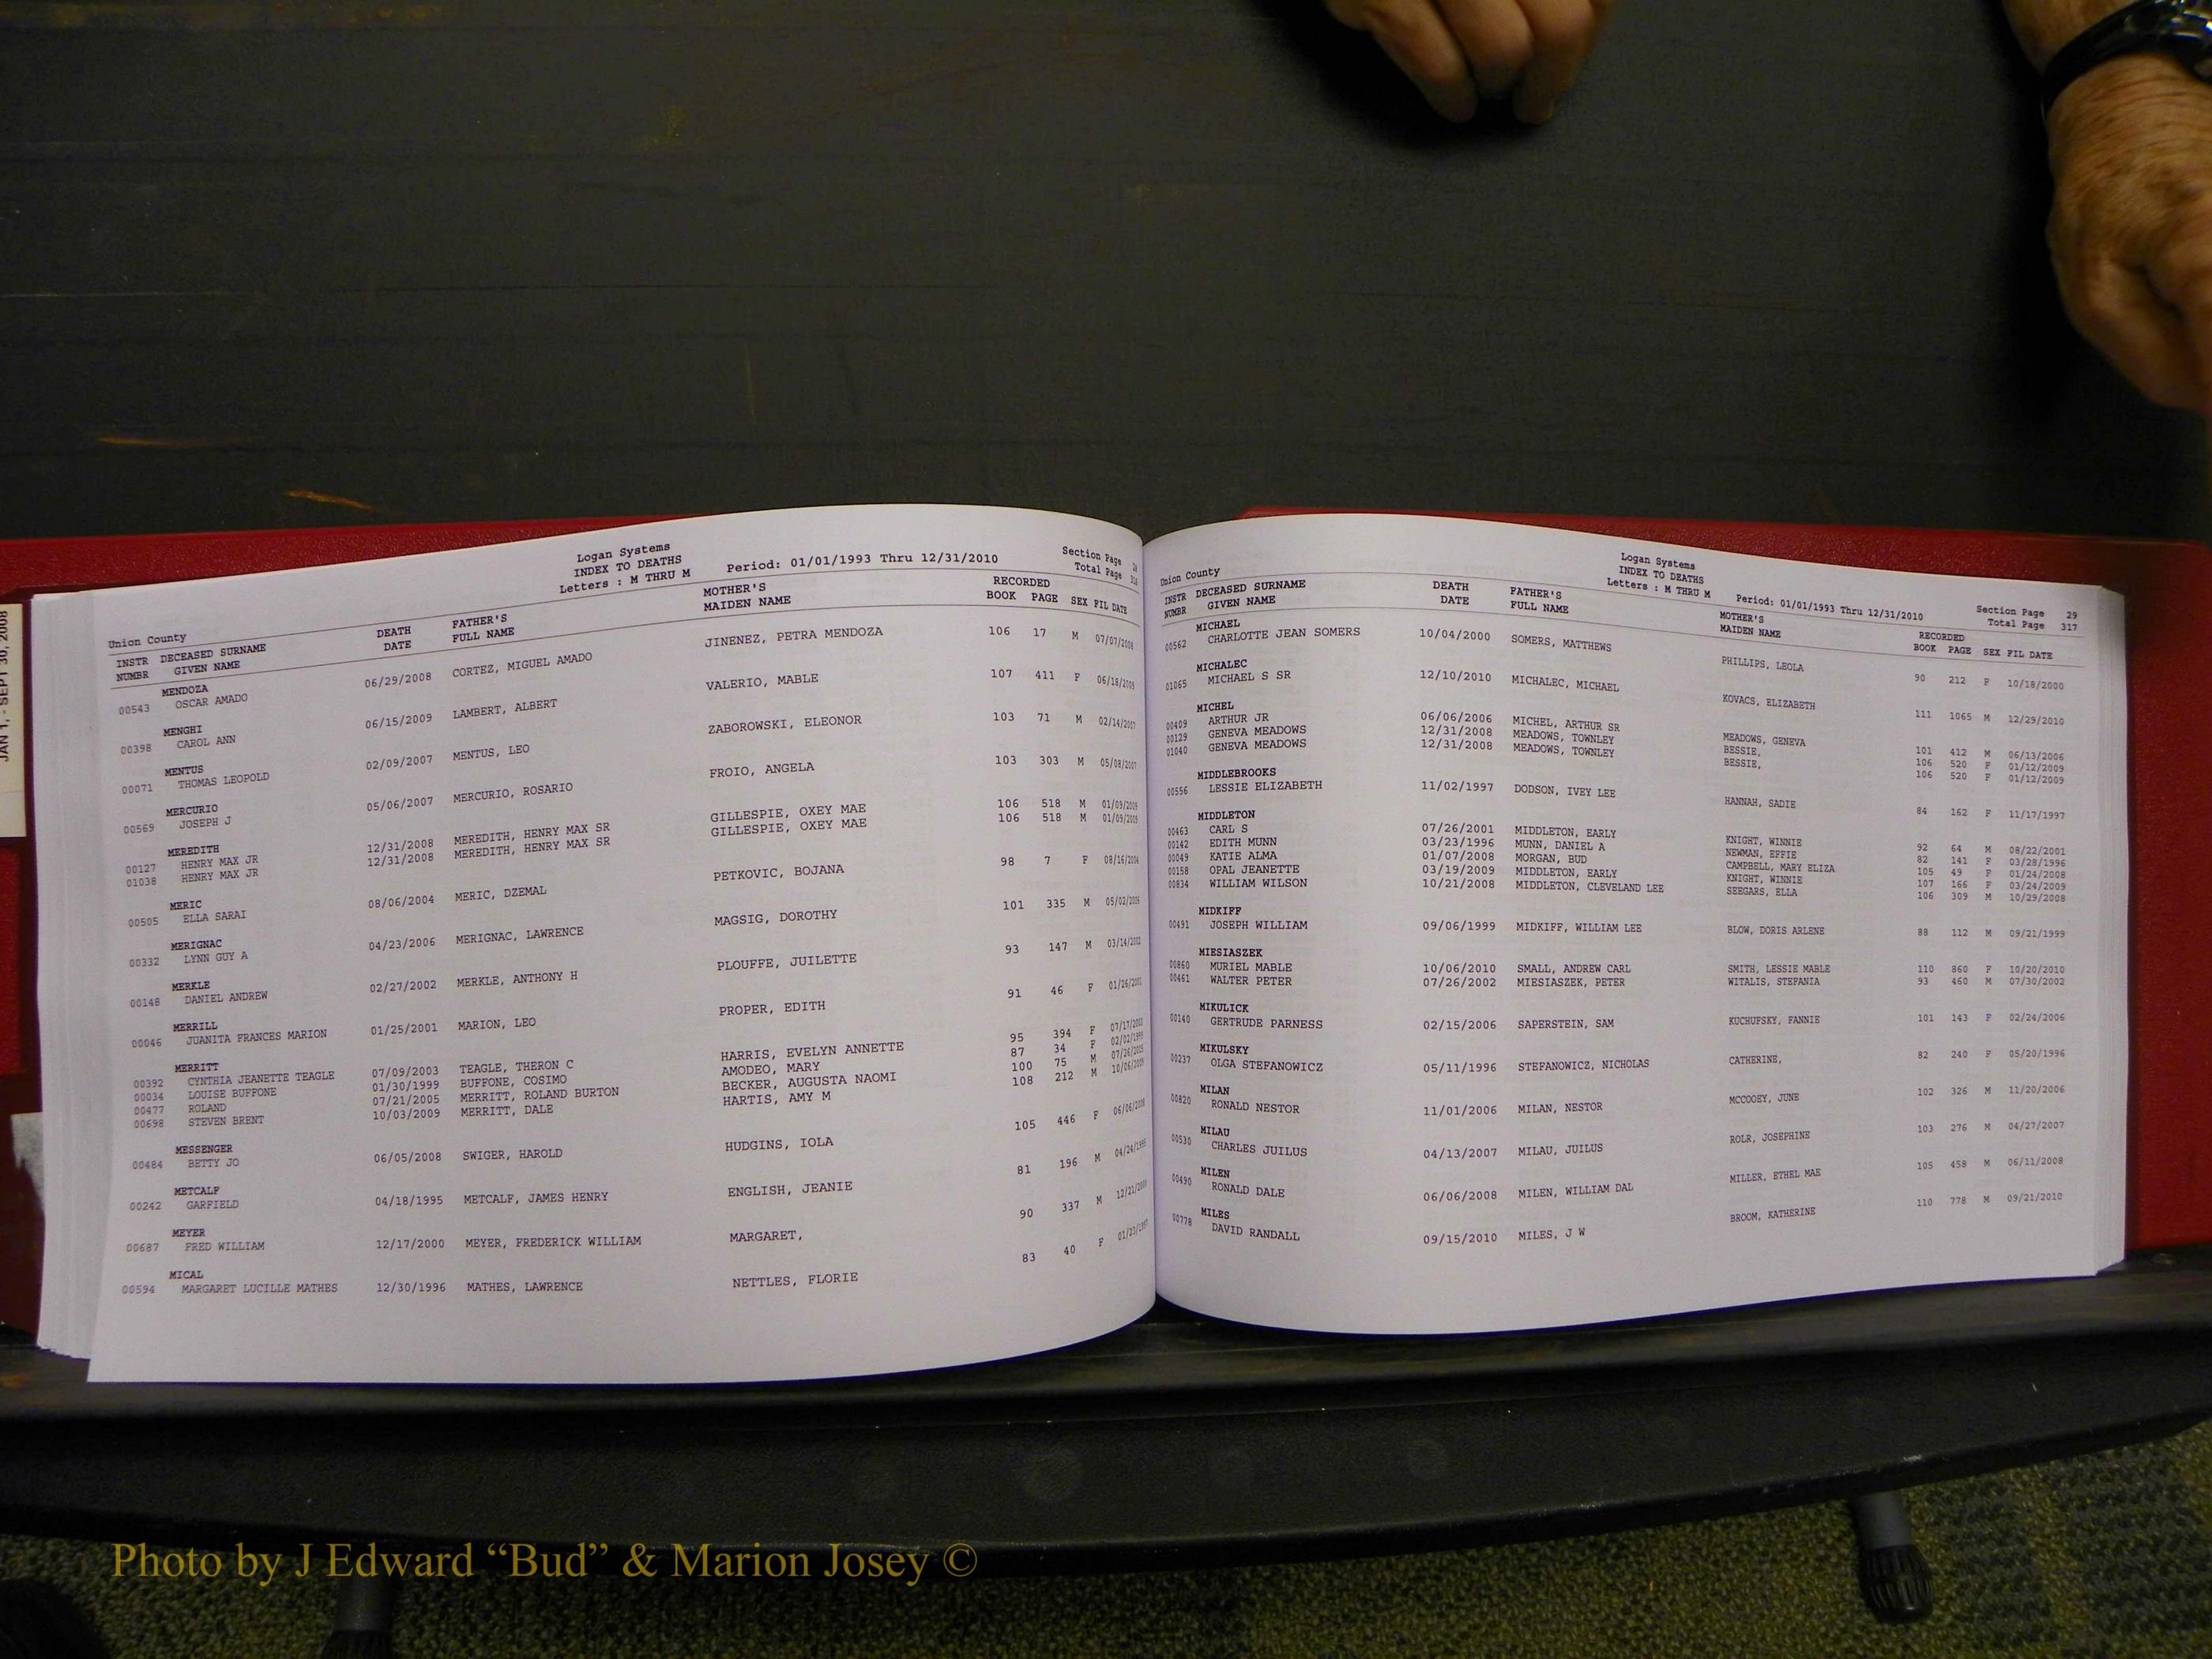 JAN 1, - SEPT 30, 2008
Logan Systems
INDEX TO DEATHS
Letters : M THRU M Period: 01/01/1993 Thru 12/31/2010
Section Page
Total Page
Union County
INSTR DECEASED SURNAME DEATH FATHER'S MOTHER'S RECORDED
NUMBR GIVEN NAME DATE FULL NAME MAIDEN NAME BOOK PAGE SEX FIL DATE
MENDOZA
00543 OSCAR AMADO 06/29/2008 CORTEZ, MIGUEL AMADO JINENEZ, PETRA MENDOZA 106 17 M 07/07/2008
MENGHI
00398 CAROL ANN 06/15/2009 LAMBERT, ALBERT VALERIO, MABLE 107 411 F 06/18/2009
MENTUS
00071 THOMAS LEOPOLD 02/09/2007 MENTUS, LEO ZABOROWSKI, ELEONOR 103 71 M 02/14/2007
MERCURIO
00569 JOSEPH J 05/06/2007 MERCURIO, ROSARIO FROIO, ANGELA 103 303 M 05/08/2007
MEREDITH
00127 HENRY MAX JR 12/31/2008 MEREDITH, HENRY MAX SR GILLESPIE, OXEY MAE 106 518 M 01/09/2009
01038 HENRY MAX JR 12/31/2008 MEREDITH, HENRY MAX SR GILLESPIE, OXEY MAE 106 518 M 01/09/2009
MERIC
00505 ELLA SARAI 08/06/2004 MERIC, DZEMAL PETKOVIC, BOJANA 98 7 F 08/16/2004
MERIGNAC
00332 LYNN GUY A 04/23/2006 MERIGNAC, LAWRENCE MAGSIG, DOROTHY 101 335 M 05/02/2006
MERKLE
00148 DANIEL ANDREW 02/27/2002 MERKLE, ANTHONY H PLOUFFE, JUILETTE 93 147 M 03/14/2002
MERRILL
00046 JUANITA FRANCES MARION 01/25/2001 MARION, LEO PROPER, EDITH 91 46 F 01/26/2001
MERRITT
00392 CYNTHIA JEANETTE TEAGLE 07/09/2003 TEAGLE, THERON C HARRIS, EVELYN ANNETTE 95 394 F 07/17/2003
00034 LOUISE BUFFONE 01/30/1999 BUFFONE, COSIMO AMODEO, MARY 87 34 F 02/02/1999
00477 ROLAND 07/21/2005 MERRITT, ROLAND BURTON BECKER, AUGUSTA NAOMI 100 75 M 07/26/2005
00698 STEVEN BRENT 10/03/2009 MERRITT, DALE HARTIS, AMY M 108 212 M 10/06/2009
MESSENGER
00484 BETTY JO 06/05/2008 SWIGER, HAROLD HUDGINS, IOLA 105 446 F 06/06/2008
METCALF
00242 GARFIELD 04/18/1995 METCALF, JAMES HENRY ENGLISH, JEANIE 81 196 M 04/24/1995
MEYER
00687 FRED WILLIAM 12/17/2000 MEYER, FREDERICK WILLIAM MARGARET, 90 337 M 12/21/2000
MICAL
00594 MARGARET LUCILLE MATHES 12/30/1996 MATHES, LAWRENCE NETTLES, FLORIE 83 40 F 01/23/1997
Logan Systems
INDEX TO DEATHS
Letters : M THRU M Period: 01/01/1993 Thru 12/31/2010
Section Page 29
Total Page 317
Union County
INSTR DECEASED SURNAME DEATH FATHER'S MOTHER'S RECORDED
NUMBR GIVEN NAME DATE FULL NAME MAIDEN NAME BOOK PAGE SEX FIL DATE
MICHAEL
00562 CHARLOTTE JEAN SOMERS 10/04/2000 SOMERS, MATTHEWS PHILLIPS, LEOLA 90 212 F 10/18/2000
MICHALEC
01065 MICHAEL S SR 12/10/2010 MICHALEC, MICHAEL KOVACS, ELIZABETH 111 1065 M 12/29/2010
MICHEL
00409 ARTHUR JR 06/06/2006 MICHEL, ARTHUR SR MEADOWS, GENEVA 101 412 M 06/13/2006
00129 GENEVA MEADOWS 12/31/2008 MEADOWS, TOWNLEY BESSIE, 106 520 F 01/12/2009
01040 GENEVA MEADOWS 12/31/2008 MEADOWS, TOWNLEY BESSIE, 106 520 F 01/12/2009
MIDDLEBROOKS
00556 LESSIE ELIZABETH 11/02/1997 DODSON, IVEY LEE HANNAH, SADIE 84 162 F 11/17/1997
MIDDLETON
00463 CARL S 07/26/2001 MIDDLETON, EARLY KNIGHT, WINNIE 92 64 M 08/22/2001
00142 EDITH MUNN 03/23/1996 MUNN, DANIEL A NEWMAN, EFFIE 82 141 F 03/28/1996
00049 KATIE ALMA 01/07/2008 MORGAN, BUD CAMPBELL, MARY ELIZA 105 49 F 01/24/2008
00158 OPAL JEANETTE 03/19/2009 MIDDLETON, EARLY KNIGHT, WINNIE 107 166 F 03/24/2009
00834 WILLIAM WILSON 10/21/2008 MIDDLETON, CLEVELAND LEE SEEGARS, ELLA 106 309 M 10/29/2008
MIDKIFF
00491 JOSEPH WILLIAM 09/06/1999 MIDKIFF, WILLIAM LEE BLOW, DORIS ARLENE 88 112 M 09/21/1999
MIESIASZEK
00860 MURIEL MABLE 10/06/2010 SMALL, ANDREW CARL SMITH, LESSIE MABLE 110 860 F 10/20/2010
00461 WALTER PETER 07/26/2002 MIESIASZEK, PETER WITALIS, STEFANIA 93 460 M 07/30/2002
MIKULICK
00140 GERTRUDE PARNESS 02/15/2006 SAPERSTEIN, SAM KUCHUFSKY, FANNIE 101 143 F 02/24/2006
MIKULSKY
00237 OLGA STEFANOWICZ 05/11/1996 STEFANOWICZ, NICHOLAS CATHERINE, 82 240 F 05/20/1996
MILAN
00820 RONALD NESTOR 11/01/2006 MILAN, NESTOR MCCOOEY, JUNE 102 326 M 11/20/2006
MILAU
00530 CHARLES JUILUS 04/13/2007 MILAU, JUILUS ROLR, JOSEPHINE 103 276 M 04/27/2007
MILEN
00490 RONALD DALE 06/06/2008 MILEN, WILLIAM DAL MILLER, ETHEL MAE 105 458 M 06/11/2008
MILES
00778 DAVID RANDALL 09/15/2010 MILES, J W BROOM, KATHERINE 110 778 M 09/21/2010
Photo by J Edward “Bud” & Marion Josey ©